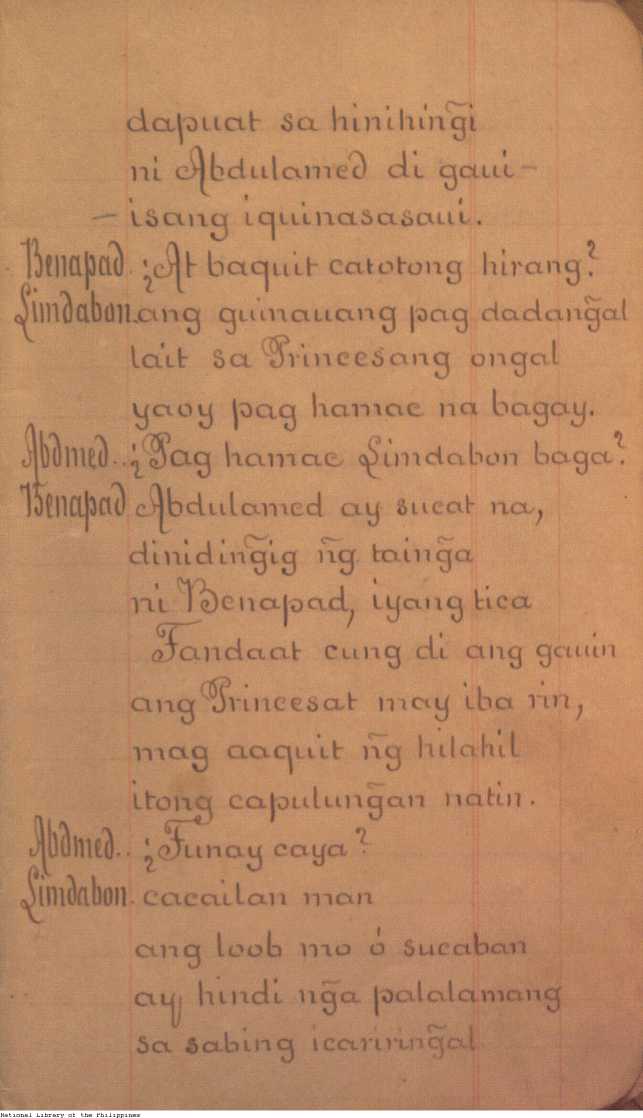 dapuat sa hinihing̃i
ni Abdulamed di gaui-
-isang iquinasasaui.
Benapad. ¿At baquit catotong hirang?
Limdabon. ang guinauang pag dadang̃al
lait sa Princesang ongal
yaoy pag hamac na bagay.
Abdmed.. ¿Pag hamac Limdabon baga?
Benapad Abdulamed ay sucat na,
diniding̃ig ñg taing̃a
ni Benapad, iyang tica
Tandaat cung di ang gauin
ang Princesat may iba rin,
mag aaquit ñg hilahil
itong capulung̃an natin.
Abdmed.. ¿Tunay caya?
Limdabon. cacailan man
ang loob mo ó sucaban
ay hindi ng̃a palalamang
sa sabing icariring̃al
National Library of the Philippines